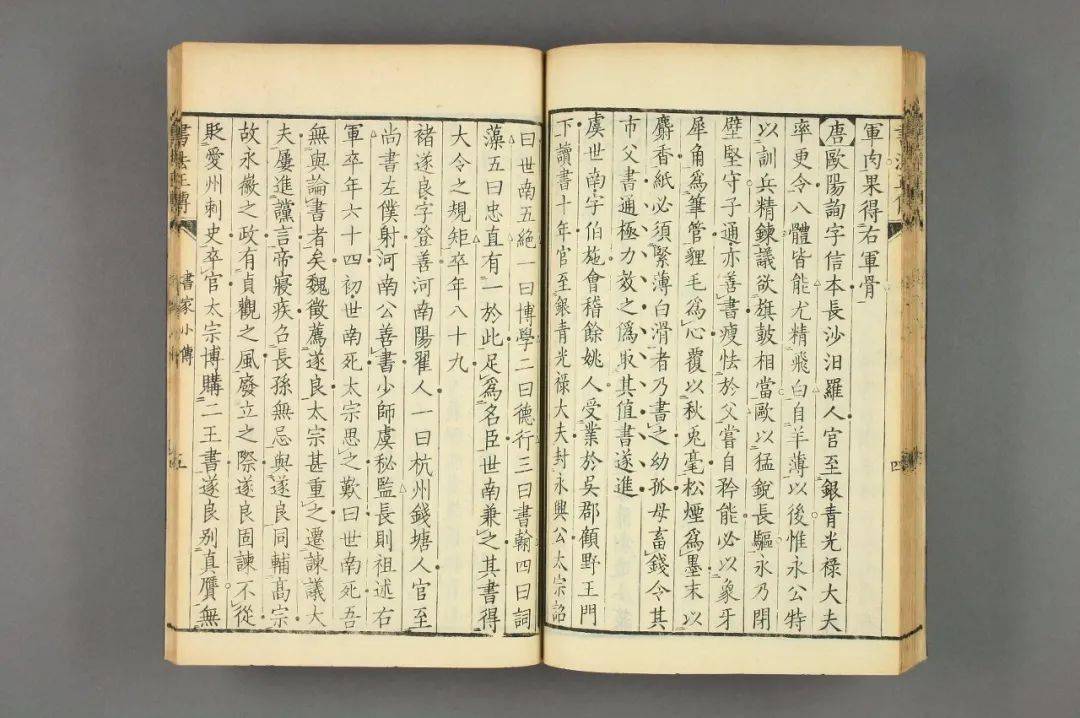 軍肉果得右軍骨
唐歐陽詢字信本長沙汨羅人官至銀青光祿大夫
率更令八體皆能尤精飛白自羊薄以後惟永公特
以訓兵精鍊議欲旗鼓相當歐以猛銳長驅永乃閉
壁堅守子通亦善書瘦怯於父嘗自矜能必以象牙
犀角爲筆管貍毛爲心覆以秋兎毫松煙爲墨末以
麝香紙必須緊薄白滑者乃書之幼孤母畜錢令其
市父書通極力效之僞取其值書遂進
虞世南字伯施會稽餘姚人受業於吳郡顧野王門
下讀書十年官至銀青光祿大夫封永興公太宗詔
曰世南五絕一曰博學二曰德行三曰書翰四曰詞
藻五曰忠直有一於此足爲名臣世南兼之其書得
大令之規矩卒年八十九
褚遂良字登善河南陽翟人一曰杭州錢塘人官至
尚書左僕射河南公善書少師虞秘監長則祖述右
軍卒年六十四初世南死太宗思之歎曰世南死吾
無與論書者矣魏徵薦遂良太宗甚重之遷諫議大
夫屢進讜言帝寢疾召長孫無忌與遂良同輔高宗
故永徽之政有貞觀之風廢立之際遂良固諫不從
貶愛州刺史卒官太宗博購二王書遂良別真贋無
書法正傳
書家小傳
五
四